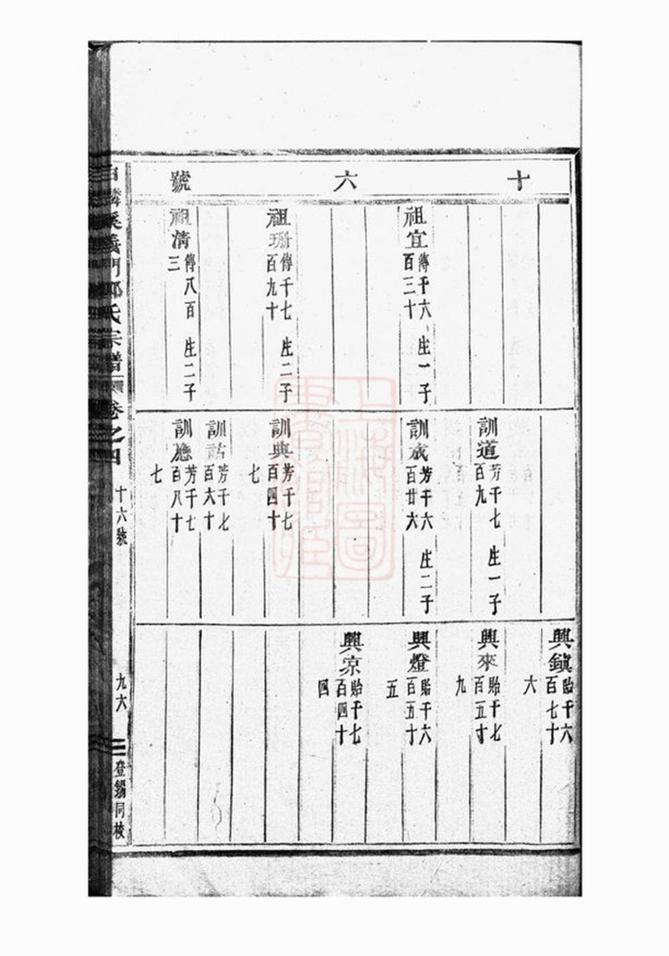 十六號
祖宜 傳千六百三十 生一子
祖珊 傳千七百九十 生二子
祖清 傳八百三 生二子
訓道 芳千七百九 生一子
訓成 芳千六百廿六 生二子
訓典 芳千七百四十七
訓 芳千七百六十
訓應 芳千七百八十七
興鎮 貽千六百七十六
興來 貽千七百五十九
興燈 貽千六百五十五
興凉 貽千七百四十四
白麟溪義門鄭氏宗譜 卷之四
十六號
九六
登錫同校
上海圖書館藏